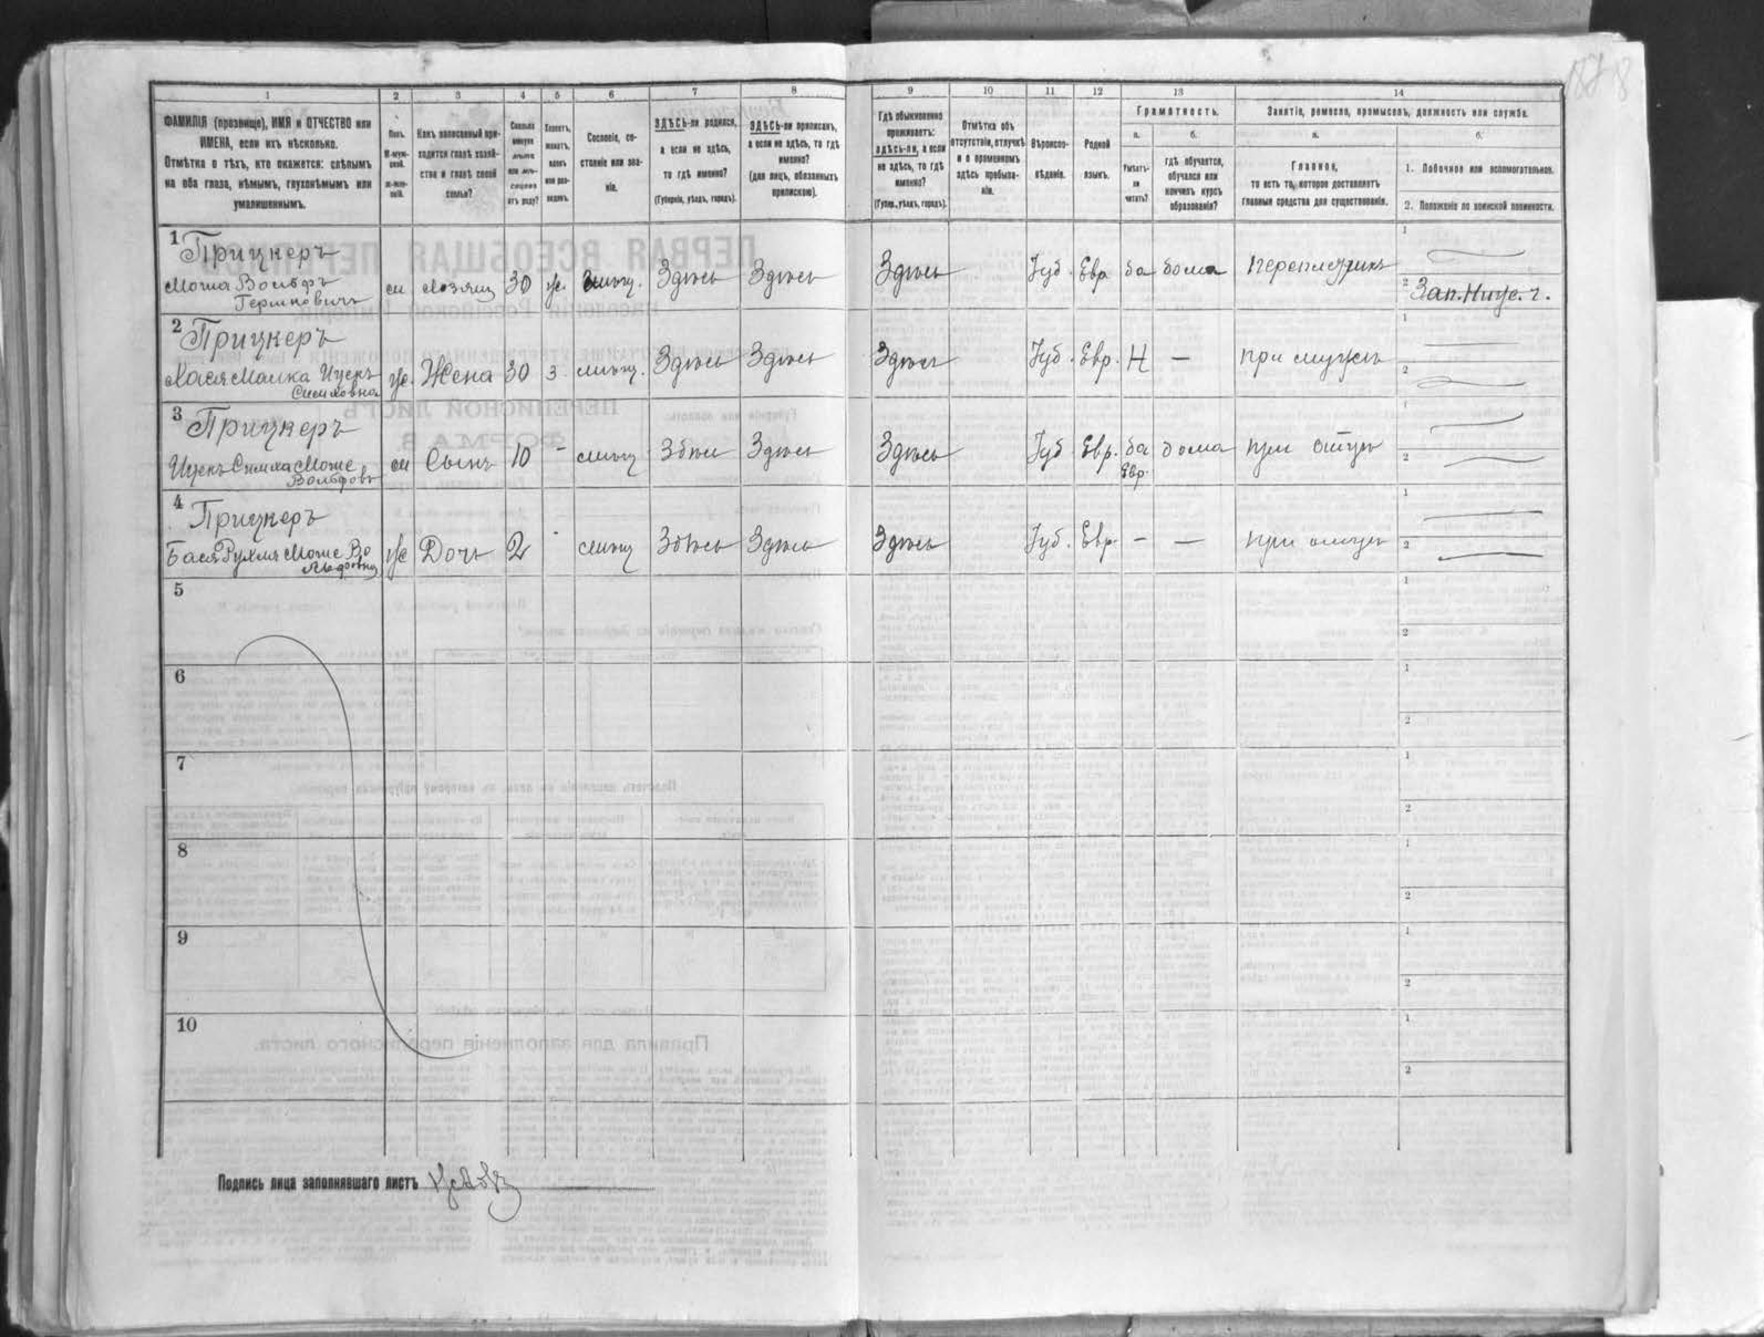 188
1 2 3 4 5 6 7 8 9 10 11 12 13 14
ФАМИЛІЯ (прозвище), ИМЯ и ОТЧЕСТВО или
ИМЕНА, если ихъ нѣсколько.
Отмѣтка о тѣхъ, кто окажется: слѣпымъ
на оба глаза, нѣмымъ, глухонѣмымъ или
умалишеннымъ.
Полъ.
М-муж-
ской.
ж-жен-
скій.
Какъ записанный при-
ходится главѣ хозяй-
ства и главѣ своей
семьи?
Сколько
минуло
лѣтъ
или мѣ-
сяцевъ
отъ роду?
Холостъ,
женатъ,
вдовъ
или раз-
веденъ.
Сословіе, со-
стояніе или зва-
ніе.
ЗДѢСЬ-ли родился,
а если не здѣсь,
то гдѣ именно?
(Губернія, уѣздъ, городъ).
ЗДѢСЬ-ли приписанъ,
а если не здѣсь, то гдѣ
именно?
(для лицъ, обязанныхъ
припиской).
Гдѣ обыкновенно
проживаетъ:
здѣсь-ли, а если
не здѣсь, то гдѣ
именно?
(Губер., уѣздъ, городъ).
Отмѣтка объ
отсутствіи, отлучкѣ
и о временномъ
здѣсь пребыва-
ніи.
Вѣроиспо-
вѣданіе.
Родной
языкъ.
Грамотность.
а. б.
Умѣетъ-
ли
читать?
гдѣ обучается,
обучался или
кончилъ курсъ
образованія?
Занятіе, ремесло, промыселъ, должность или служба.
а. б.
Главное,
то есть то, которое доставляетъ
главныя средства для существованія.
1. Побочное или вспомогательное.
2. Положеніе по воинской повинности.
1 Прицкеръ
Моша Вольфъ
Гершковичъ
м Хозяин 30 ж. мѣщ. Здѣсь Здѣсь Здѣсь Іуд. Евр да дома переплетчикъ 1
2
2 Прицкеръ
Хася Малка Ицекъ
Симховна
ж. Жена 30 з мѣщ. Здѣсь Здѣсь Здѣсь Іуд. Евр. Н — при мужѣ 1
2
3 Прицкеръ
Ицекъ Симха Моше
Вольфовъ
м Сынъ 10 - мѣщ Здѣсь Здѣсь Здѣсь Іуд Евр. да дома при отцѣ 1
Евр.
2
4 Прицкеръ
Бася Рухля Моше Во
льфовна
ж Дочь 2 - мѣщ Здѣсь Здѣсь Здѣсь Іуд. Евр. - — при отцѣ 1
2
5 1
2
6 1
2
7 1
2
8 1
2
9 1
2
10 1
2
Подпись лица заполнявшаго листъ